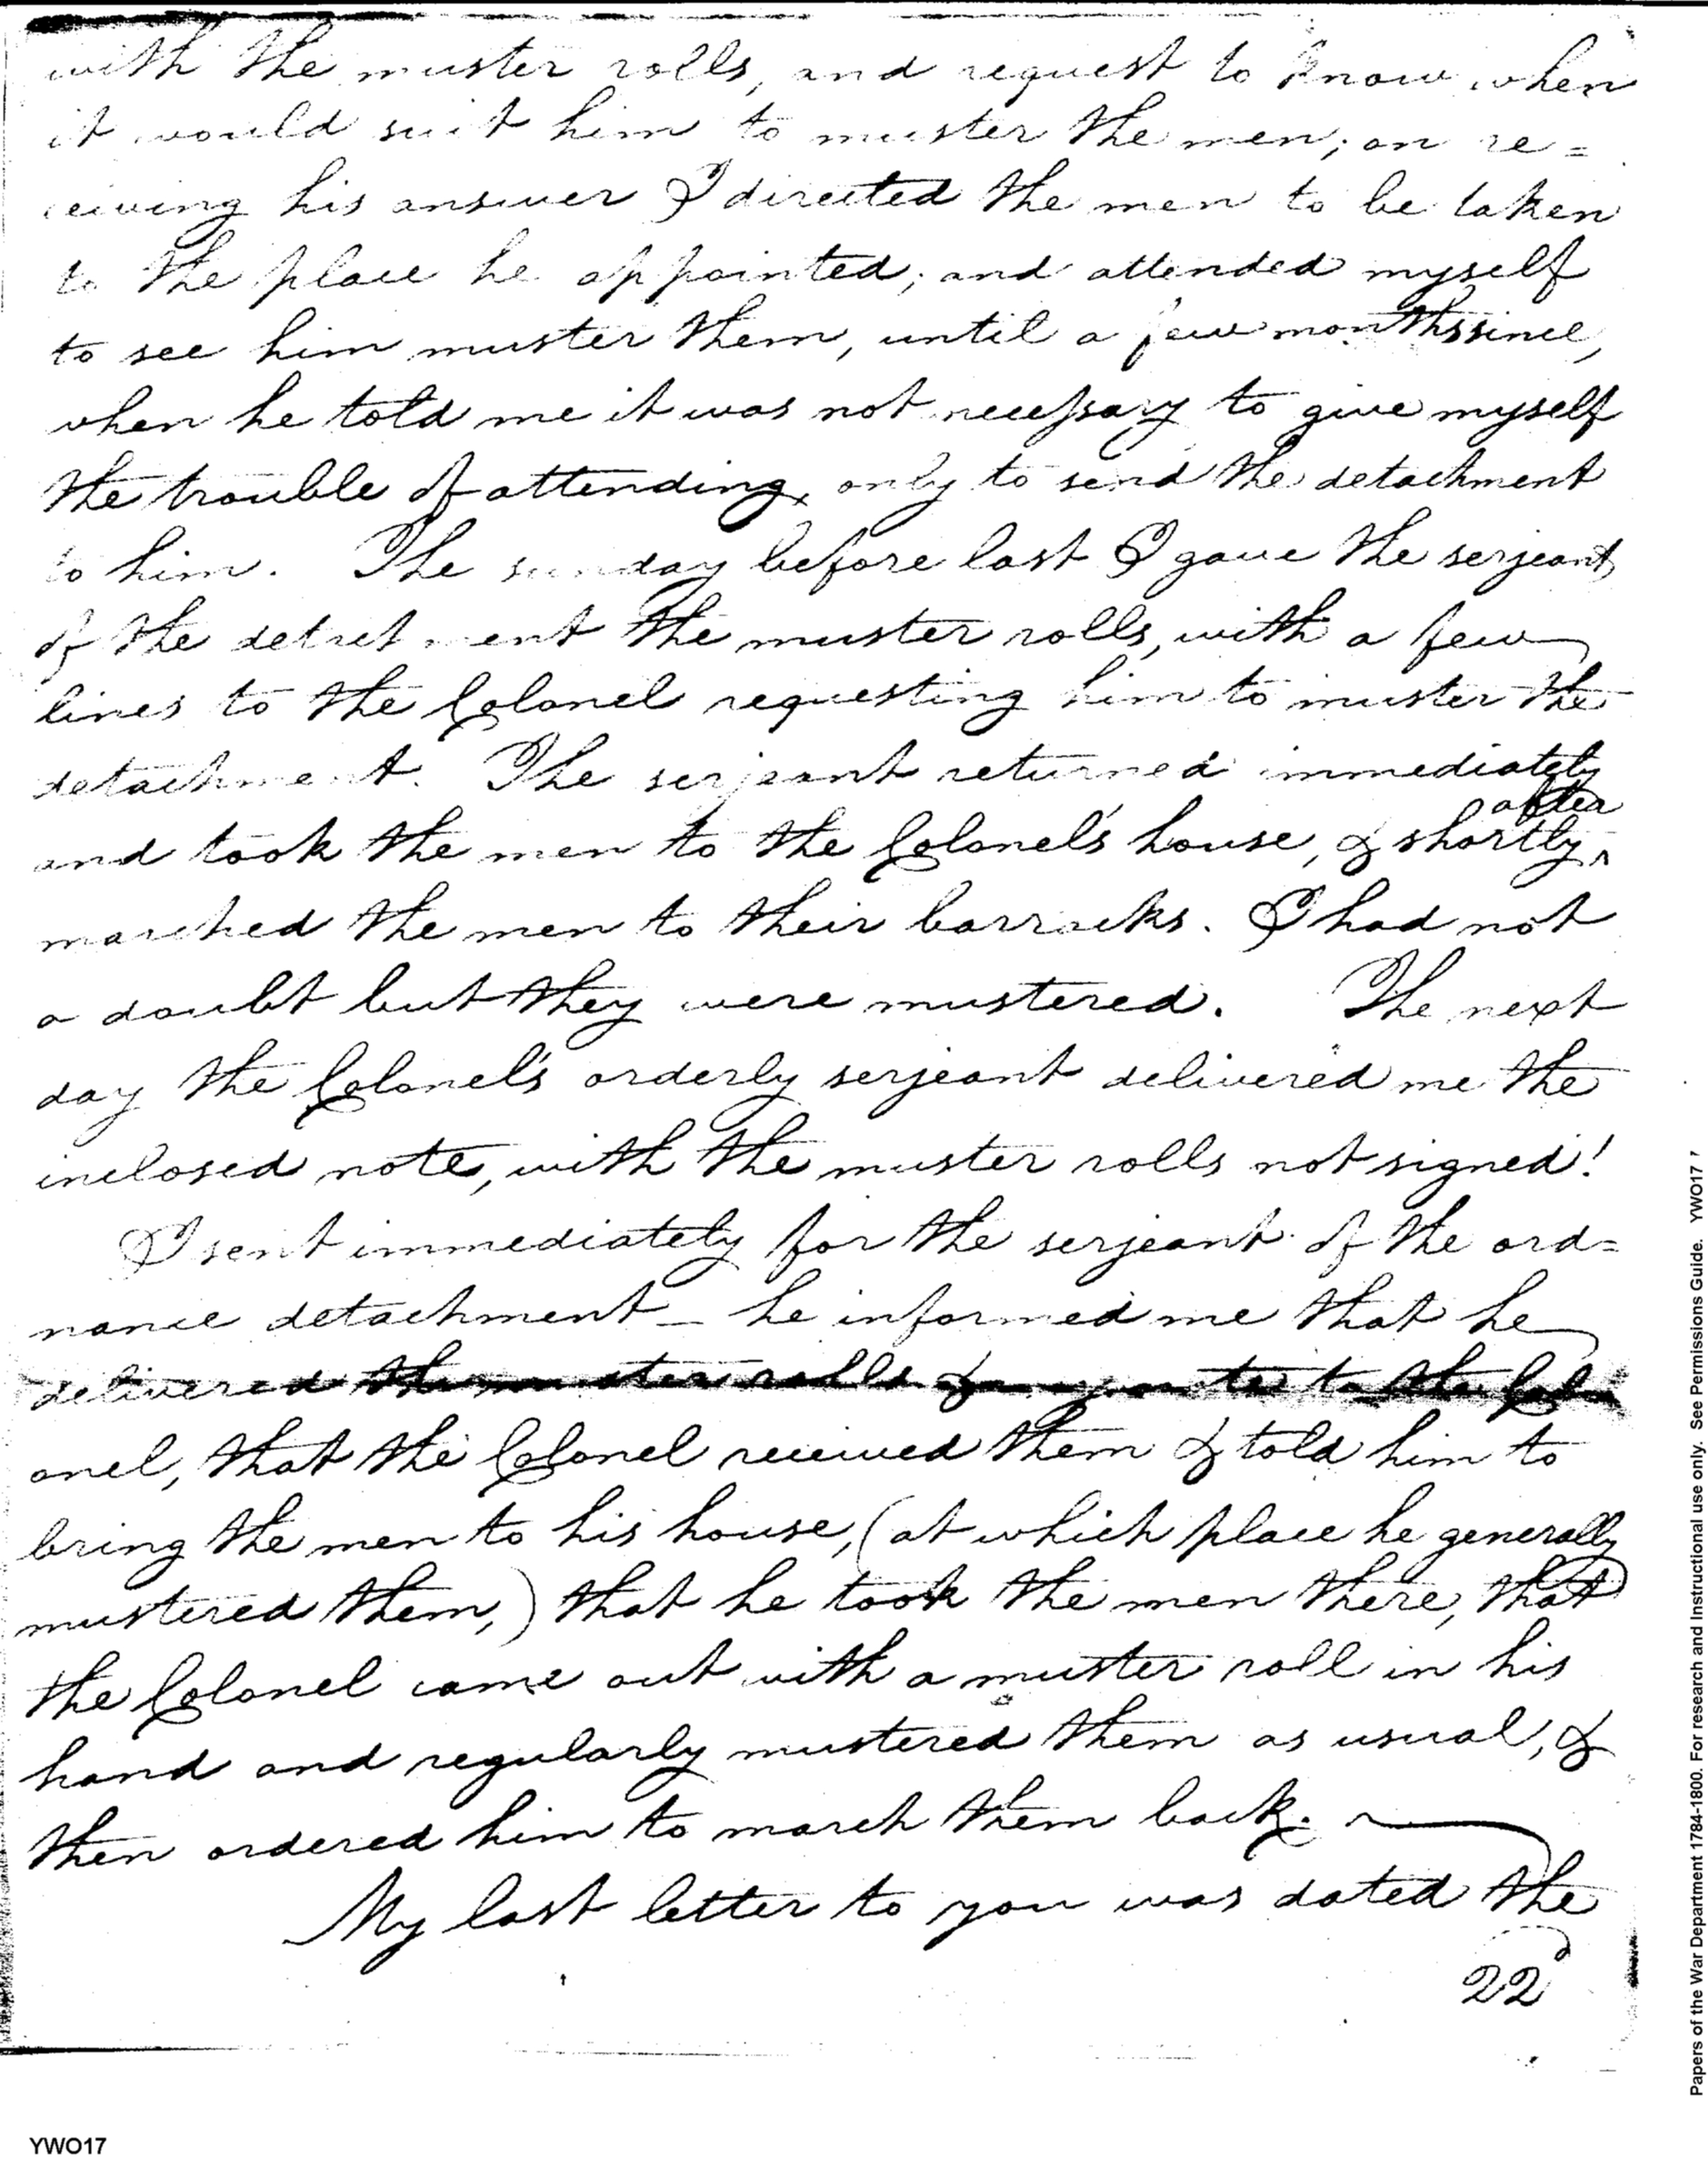 with the muster rolls, and request to know when
it would suit him to muster the men; on re=
ceiving his answer I directed the men to be taken
to the place he appointed; and attended myself
to see him muster them, until a few months since,
when he told me it was not necessary to give myself
the trouble of attending, only to send the detachment
to him. The sunday before last I gave the serjeant
of the detachment the muster rolls, with a few
lines to the Colonel requesting him to muster the
detachment. The serjeant returned immediately
and took the men to the Colonel's house, & shortly ^after
marched the men to their barracks. I had not
a doubt but they were mustered. The next
day the Colonel's orderly serjeant delivered me the
inclosed note, with the muster rolls not signed!
I sent immediately for the serjeant of the ord=
nance detachment _ he informed me that he
delivered the muster rolls & my note to the Col
onel, that the Colonel received them & told him to
bring the men to his house, (at which place he generally
mustered them,) that he took the men there, that
the Colonel came out with a muster roll in his
hand and regularly mustered them as usual, &
then ordered him to march them back.
My last letter to you was dated the
22
YWO17
Papers of the War Department 1784-1800. For research and Instructional use only. See Permissions Guide. YWO17